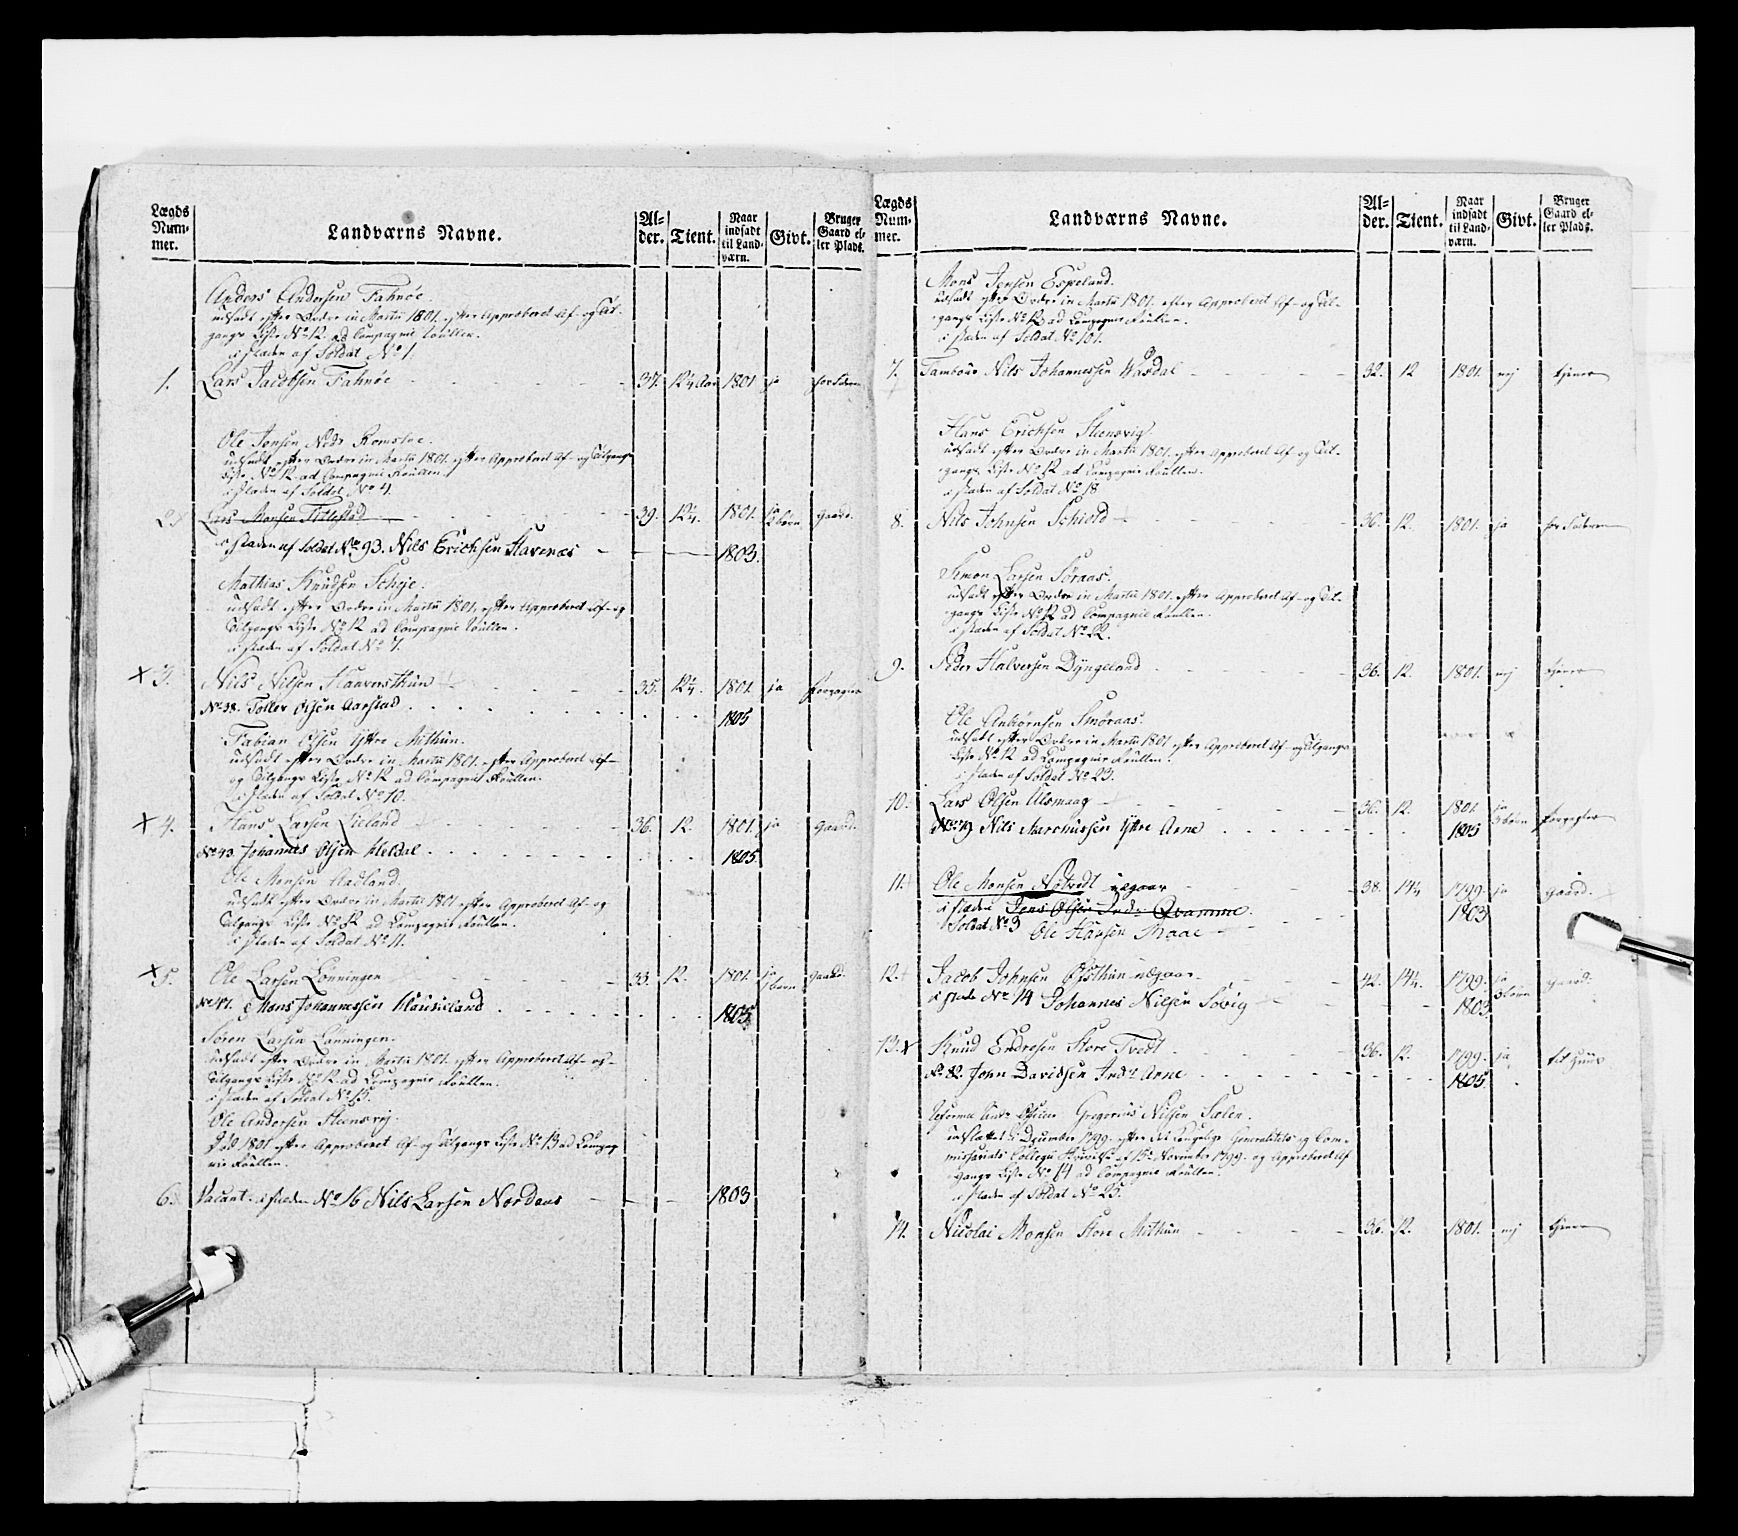 Lægds Num- mer.
Landværns Navne.
Al- der.
Tient.
Naar indsadt til Land- værn.
Givt.
Bruger Gaard el- ler Plads.
Anders Andersen Fahnöe.
udsadt efter Ordre in Martii 1801. efter Approberet Af- og Til-
gangs Liste No 12. ad Compagnie Roullen.
i staden af Soldat No 1.
1. Lars Jacobsen Fahnöe 37. 12¼ Aar 1801 ja
Ole Jonsen Nedr Romsloe.
udsadt efter Ordre in Martii 1801. efter Approberet Af- og Tilgangs
Liste No 12. ad Compagnie Roullen.
i staden af Soldat No 4.
2. Lars Monsen Tittestad 39. 12¼. 1801. ja 2 börn gaard.
i staden af Soldat No 93. Nils Erichsen Havenæs 1803.
Mathias Knudsen Scheje.
udsadt efter Ordre in Martii 1801. efter Approberet Af- og
Tilgangs Liste No 12 ad Compagnie Roullen.
i staden af Soldat No 7.
x 3. Nils Nilsen Hanversthun 35. 12¼. 1801. ja
No 38. Toller Olsen Aarstad 1805
Fabian Olsen Yttre Mithun.
udsadt efter Ordre in Martii 1801. efter Approberet Af-
og Tilgangs Liste No 12 ad Compagnie Roullen.
i staden af Soldat No 10.
x 4. Hans Larsen Lieland 36. 12. 1801. ja gaard.
No 43. Johannes Olsen Heldal 1805
Ole Monsen Hadland.
udsadt efter Ordre in Martii 1801 efter Approberet Af- og
Tilgangs Liste No 12 ad Compagnie Roullen.
i staden af Soldat No 11.
x 5. Ole Larsen Lönningen 33. 12. 1801. ja 1 barn gaard.
No 47. Mons Johannessen 1805
Sören Larsen Lönningen.
udsadt efter Ordre in Martii 1801. efter Approberet Af- og
Tilgangs Liste No 12. ad Compagnie Roullen.
i staden af Soldat No 15.
Ole Andersen Steensvej.
1801 efter Approberet Af- og Tilgangs Liste No 13 ad Compag-
nie Roullen.
6. Vacant. i staden No 16 Nils Larsen Nordaas 1803
Lægds Num- mer.
Landværns Navne.
Al- der.
Tient.
Naar indsadt til Land- værn.
Givt.
Bruger Gaard el- ler Plads.
Mons Jensen Espeland.
udsadt efter Ordre in Martii 1801. efter Approberet Af- og Til-
gangs Liste No 12 ad Compagnie Roullen.
i staden af Soldat No 101.
7. Tambour Nils Johannessen Wardal 32. 12 1801. nej tjener
Hans Erichsen Steensvig.
udsadt efter Ordre in Martii 1801. efter Approberet Af- og Til-
gangs Liste No 12 ad Compagnie Roullen.
i staden af Soldat No 18
8. Nils Johnsen Schiold 36. 12. 1801. ja
Simon Larsen Söraas.
udsadt efter Ordre in Martii 1801. efter Approberet Af- og Til-
gangs Liste No 12 ad Compagnie Roullen.
i staden af Soldat No 22.
9. Peder Halversen Dyngeland 36. 12. 1801. nej tjener
Ole Anbiörnsen Smöraas.
udsadt efter Ordre in Martii 1801. efter Approberet Af- og Tilgangs
Liste No 12 ad Compagnie Roullen.
i staden af Soldat No 23.
10. Lars Olsen Ulsmaag 36. 12. 1801. ja
No 79 Nils Marchussen Yttre Arne 1805
11. Ole Monsen Nötvedt udgaar 38. 14¼ 1799. ja gaard.
i staden Jens Olsen Indr Qvamme. 1803
Soldat No 3 Ole Hansen Maae
12. Jacob Johnsen Östhun udgaar 42. 14¼. 1799. ja gaard.
i stede No 14 Johannes Nilsen Sövig 1803
13. x Knud Endresen Store Tvedt 36. 12. 1799. ja
No 82. John Davidsen Indr Arne 1805.
Reforme Under Officier Gregorius Nilsen Sælen.
udslettet i December 1799. efter det Kongelige Generalitets og Com-
missariats Collegii af 15de November 1799. og Approberet Af
gangs Liste No 14 ad Compagnie Roullen.
i staden af Soldat No 25.
14. Nicolai Monsen Store Mithun 36. 12. 1801. nej tjener